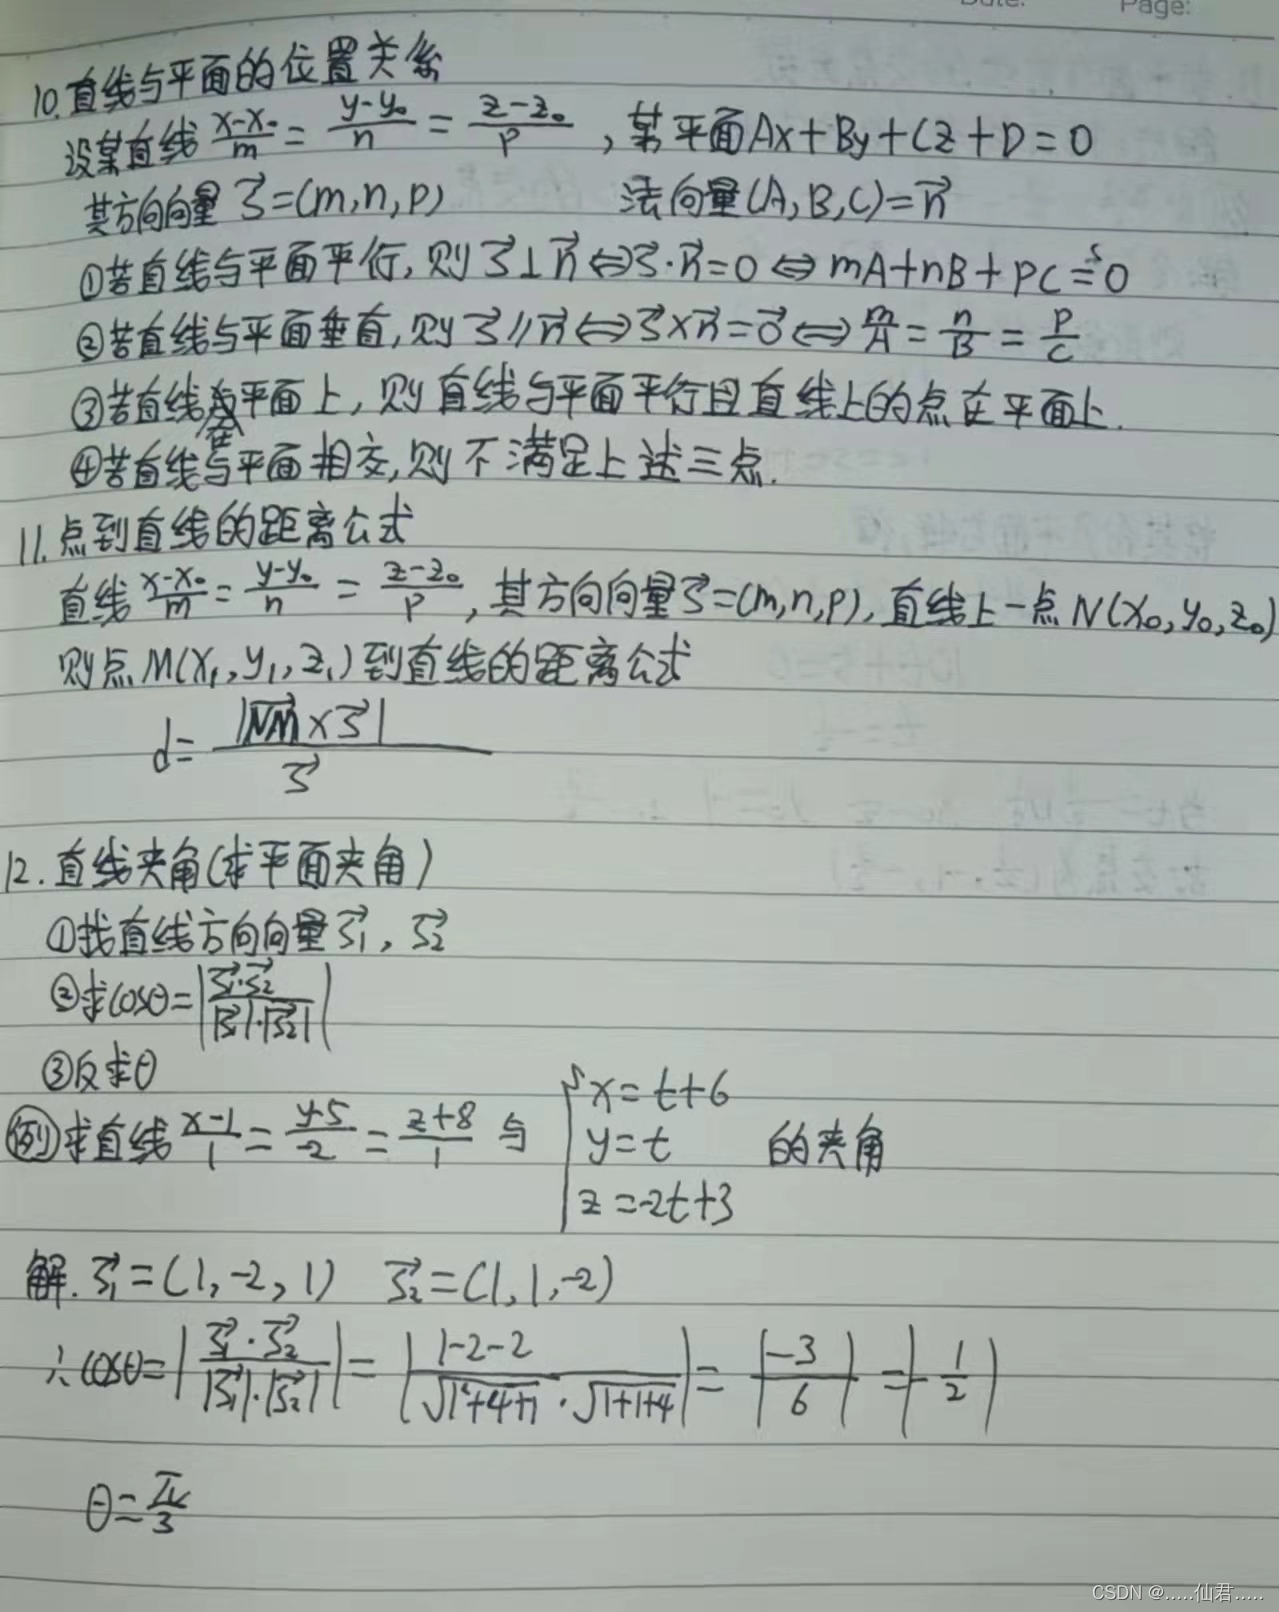 Date: Page:
10.直线与平面的位置关系
设某直线 (x-x₀)/m = (y-y₀)/n = (z-z₀)/p ,某平面Ax+By+Cz+D=0
其方向向量 s⃗=(m,n,p) 法向量(A,B,C)=n⃗
①若直线与平面平行,则 s⃗⊥n⃗⇔s⃗·n⃗=0⇔mA+nB+pC=0
②若直线与平面垂直,则 s⃗∥n⃗⇔s⃗×n⃗=0⃗⇔m/A = n/B = p/C
③若直线在平面上,则直线与平面平行且直线上的点在平面上.
④若直线与平面相交,则不满足上述三点.
11.点到直线的距离公式
直线 (x-x₀)/m = (y-y₀)/n = (z-z₀)/p ,其方向向量s⃗=(m,n,p),直线上一点N(x₀,y₀,z₀)
则点M(x₁,y₁,z₁)到直线的距离公式
d= |NM⃗×s⃗| / s⃗
12.直线夹角(求平面夹角)
①找直线方向向量s⃗₁,s⃗₂
②求cosθ=|s⃗₁·s⃗₂ / |s⃗₁|·|s⃗₂||
③反求θ
例 求直线 (x-1)/1 = (y-5)/-2 = (z+8)/1 与 { x=t+6
y=t 的夹角
z=-2t+3
解. s⃗₁=(1,-2,1) s⃗₂=(1,1,-2)
∴cosθ=|s⃗₁·s⃗₂ / |s⃗₁|·|s⃗₂|| = |1-2-2 / √(1²+4+1)·√(1+1+4)| = |-3/6| = |-1/2|
θ=π/3
CSDN @.....仙君.....